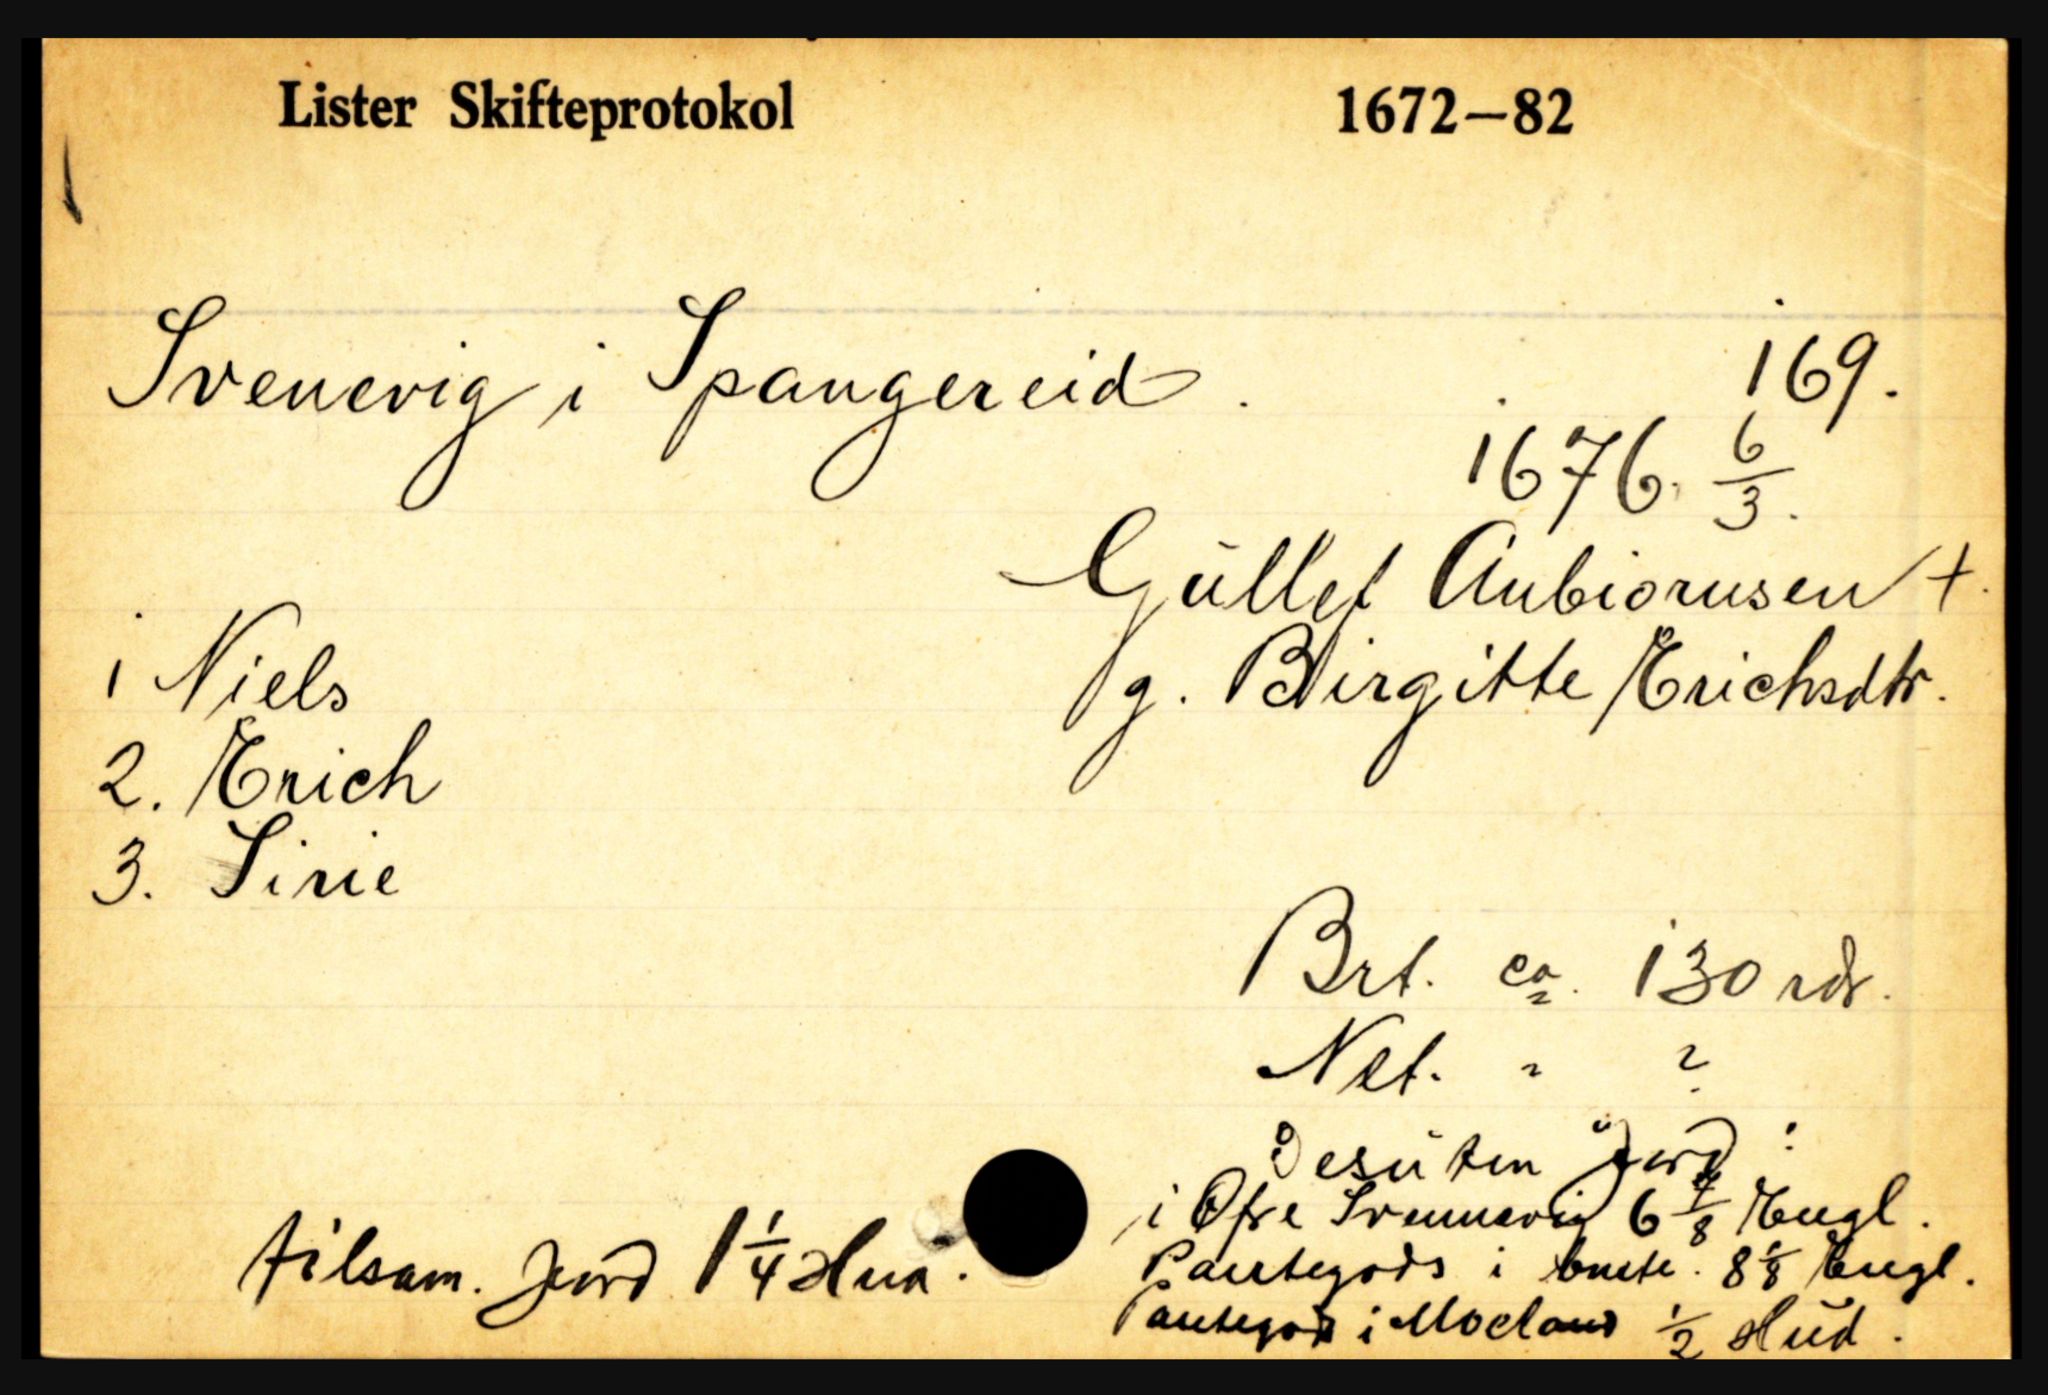 Lister Skifteprotokol 1672–82
Svenevig i Spangereid. 169.
1676. 6/3.
Güllef Anbiornsen +.
g. Birgitte Erichsdtr.
1 Niels
2. Erich
3. Sirie
Brt. ca. 130 rdr.
Net. " ?
Desüten Jord:
i Øfre Svennevig 6 7/8 Engl.
Pantegods i 8 1/8 Engl.
Pantegods i Moeland 1/2 Hüd.
tilsam. Jord 1 1/4 Hud.